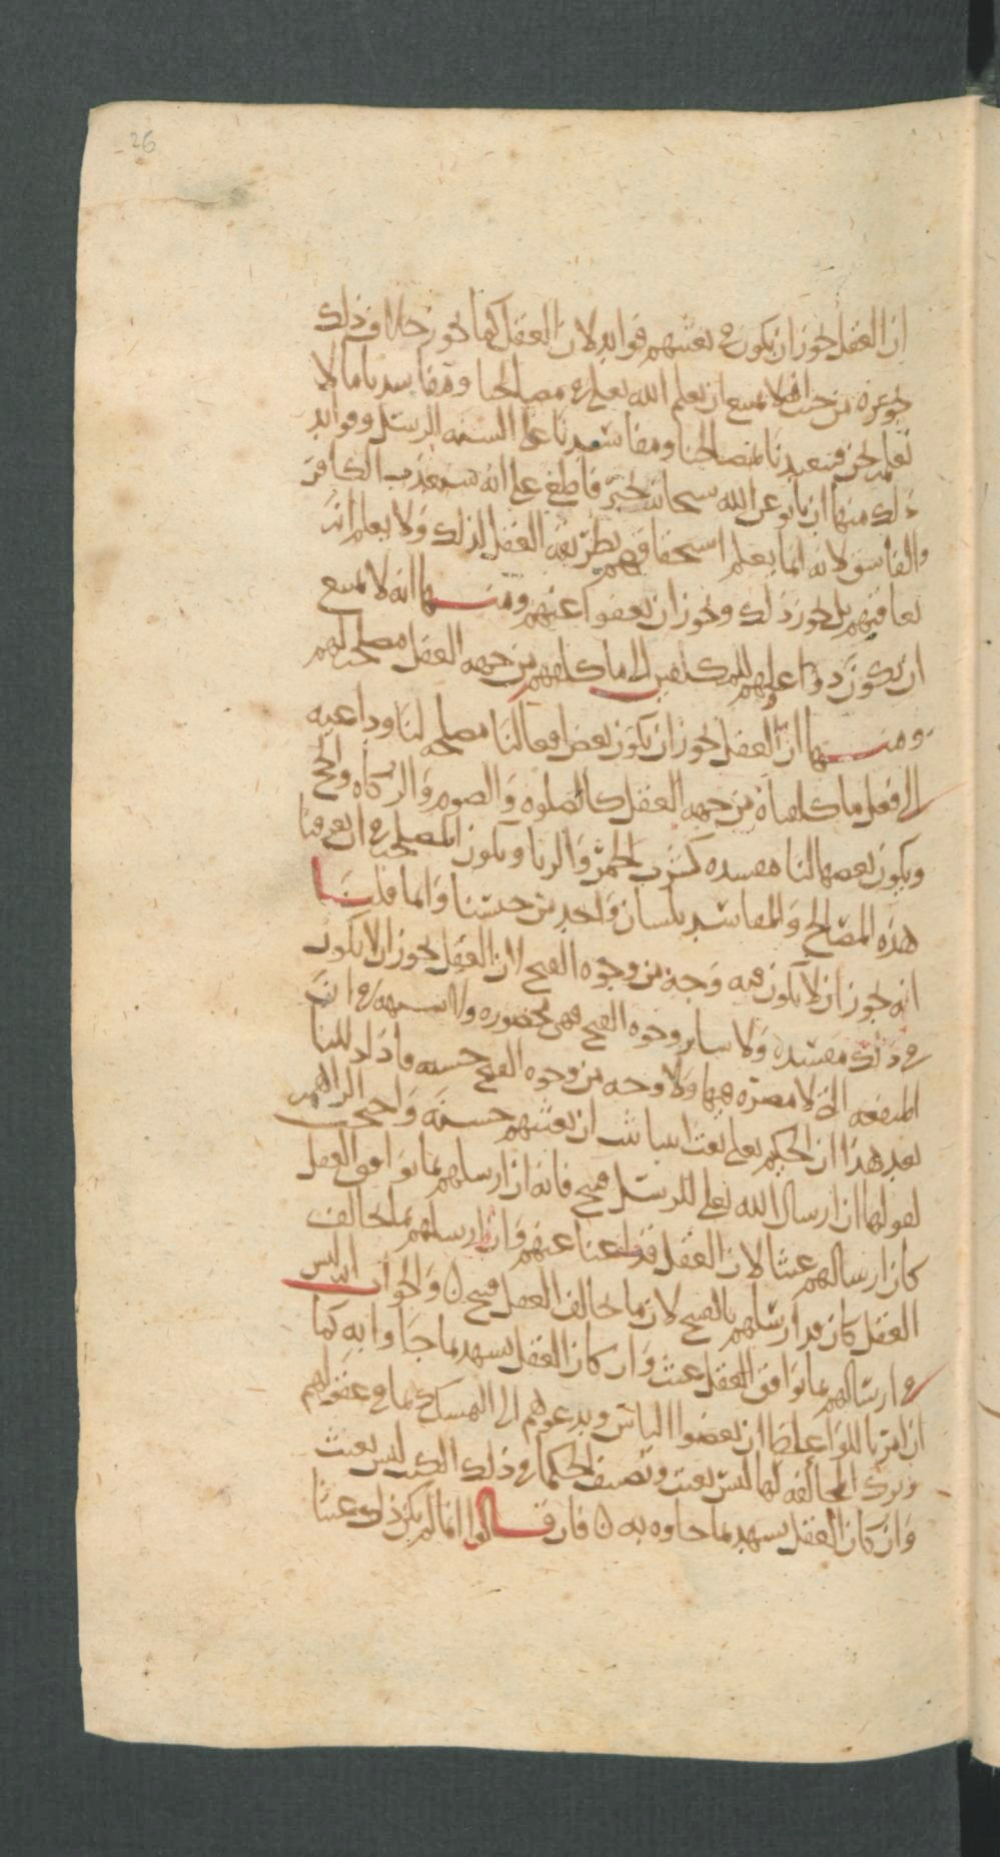 26
ان العقل يجوز ان يكون في بعثتهم فوايد لان العقل كما يجوز خلاف ذلك
يجوزه من حيث لا يمتنع ان يعلم الله تعلى في مصالحنا ومفاسدنا ما لا
نعلمه نحن فيتعبدنا بمصالحنا ومفاسدنا على السنة الرسل وفوايد
ذلك منها ان ياتو عن الله سبحانه بخبر قاطع على انه سيعذب الكافر
والفاسق لانه انما يعلم استحقاقهم بطريقة العقل لذلك ولا يعلم انه
يعاقبهم بل يجوز ذلك ويجوز ان يعفوا عنهم ومنـــها انه لا يمتنع
ان يكون دواعيهم للمكلفين الى ما كلفهم من جهه العقل مصلحة لهم
ومنـــها ان العقل يجوز ان يكون بعض افعالنا مصلحه لنا وداعيه
الى فعل ما كلفناه من جهه العقل كالصلوه والصوم والزكاه والحج
ويكون بعضها لنا مفسده كشرب الخمر والزنا ويكون المصلحة في ان يعرفنا
هذه المصالح والمفاسد بلسان واحد من جنسنا وانما قلنـــا
انه يجوز ان لا يكون فيه وجه من وجوه القبح لان العقل يجوز ان لا يكون
في ذلك مفسده ولا ساير وجوه القبح فهي محصوره ولا شبهه في ان
المنفعه التي لا مضره فيها ولا وجه من وجوه القبح حسنه فاذا دللنا
بعد هذا ان الحكيم تعلى بعث انبيا ثبت ان بعثتهم حسنة واحتجت البراهمه
لقولها ان ارسال الله تعلى للرسل قبيح فانه ان ارسلهم بما يوافق العقل
كان ارسالهم عبثا لان العقل قد اغنا عنهم وان ارسلهم بما يخالف
العقل كان قد ارسلهم بالقبيح لان ما خالف العقل قبيح ن والجواب انه ليس
في ارسالهم بما يوافق العقل عبث وان كان العقل يشهد بما جاوا به كما
ان امرنا للواعظ ان يعضوا الناس ويدعوهم الى التمسك بما في عقولهم
وترك المخالفه لها ليس بعبث وتصنيف الحكما في ذلك الكتب ليس بعبث
وان كان العقل يشهد بما جاوه به ن فان قـــالوا انما لم يكن ذلك عبثا